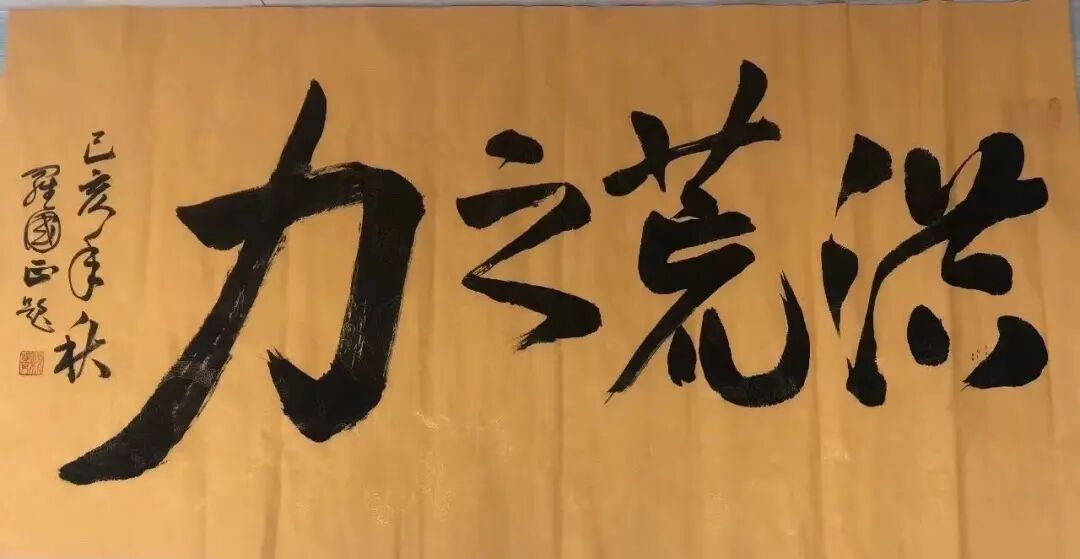 洪荒之力
己亥年秋
羅國正題